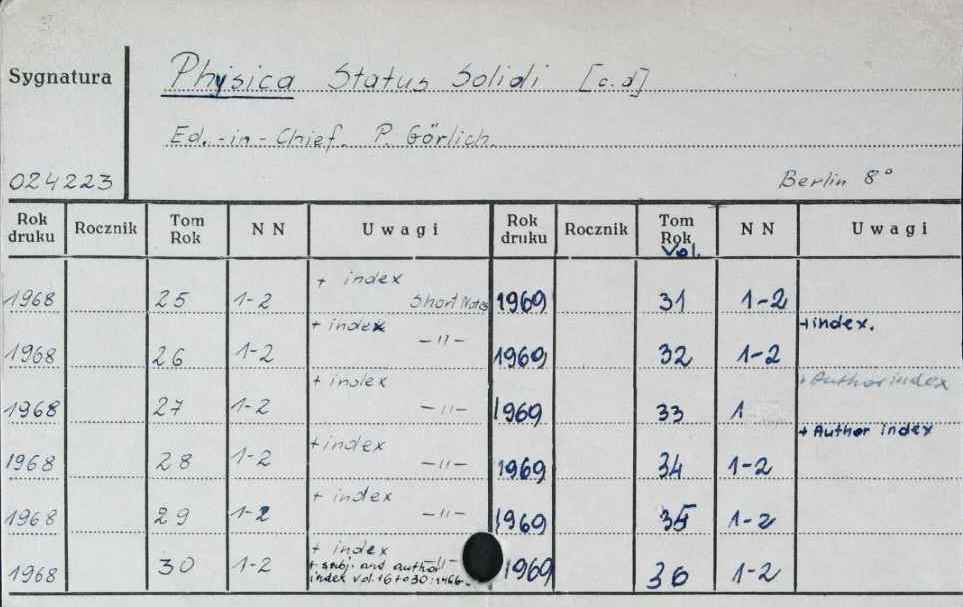 Sygnatura
Physica Status Solidi [c.d]
Ed.-in-Chief. P. Görlich.
024223
Berlin 8°
Rok druku Rocznik Tom Rok N N Uwagi Rok druku Rocznik Tom Rok Vol. N N Uwagi
+ index
1968 25 1-2 Short Notes 1969 31 1-2
+ index +index.
1968 26 1-2 -"- 1969 32 1-2
+ index + Author index
1968 27 1-2 -"- 1969 33 1
+ index + Author index
1968 28 1-2 -"- 1969 34 1-2
+ index
1968 29 1-2 -"- 1969 35 1-2
+ index
1968 30 1-2 + subj. and author -"- 1969 36 1-2
index vol. 16 to 30: